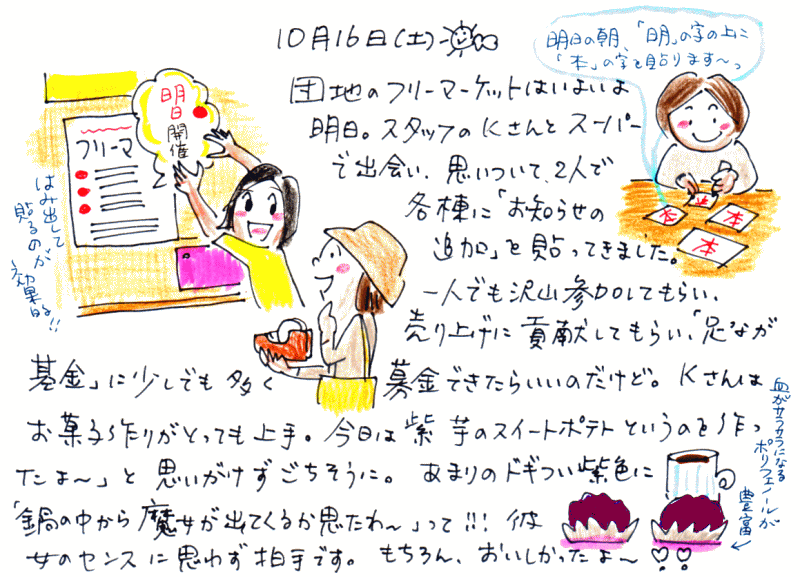 10月16日(土)
明日の朝、「明」の字の上に
「本」の字を貼ります〜っ
明
日
開
催
フリーマ
はみ出して
貼るのが
効果的!!
本
本
本
団地のフリーマーケットはいよいよ
明日。スタッフのKさんとスーパー
で出会い、思いついて、2人で
各棟に「お知らせの
追加」を貼ってきました。
一人でも沢山参加してもらい、
売り上げに貢献してもらい、「足なが
基金」に少しでも多く募金できたらいいのだけど。Kさんは
お菓子作りがとっても上手。今日は紫芋のスイートポテトというのを作っ
たよ〜」と思いがけずごちそうに。あまりのドギつい紫色に
「鍋の中から魔女が出てくるか思たわ〜」って!!! 彼
女のセンスに思わず拍手です。もちろん、おいしかったよ〜
血がサラサラになる
ポリフェノールが
豊富